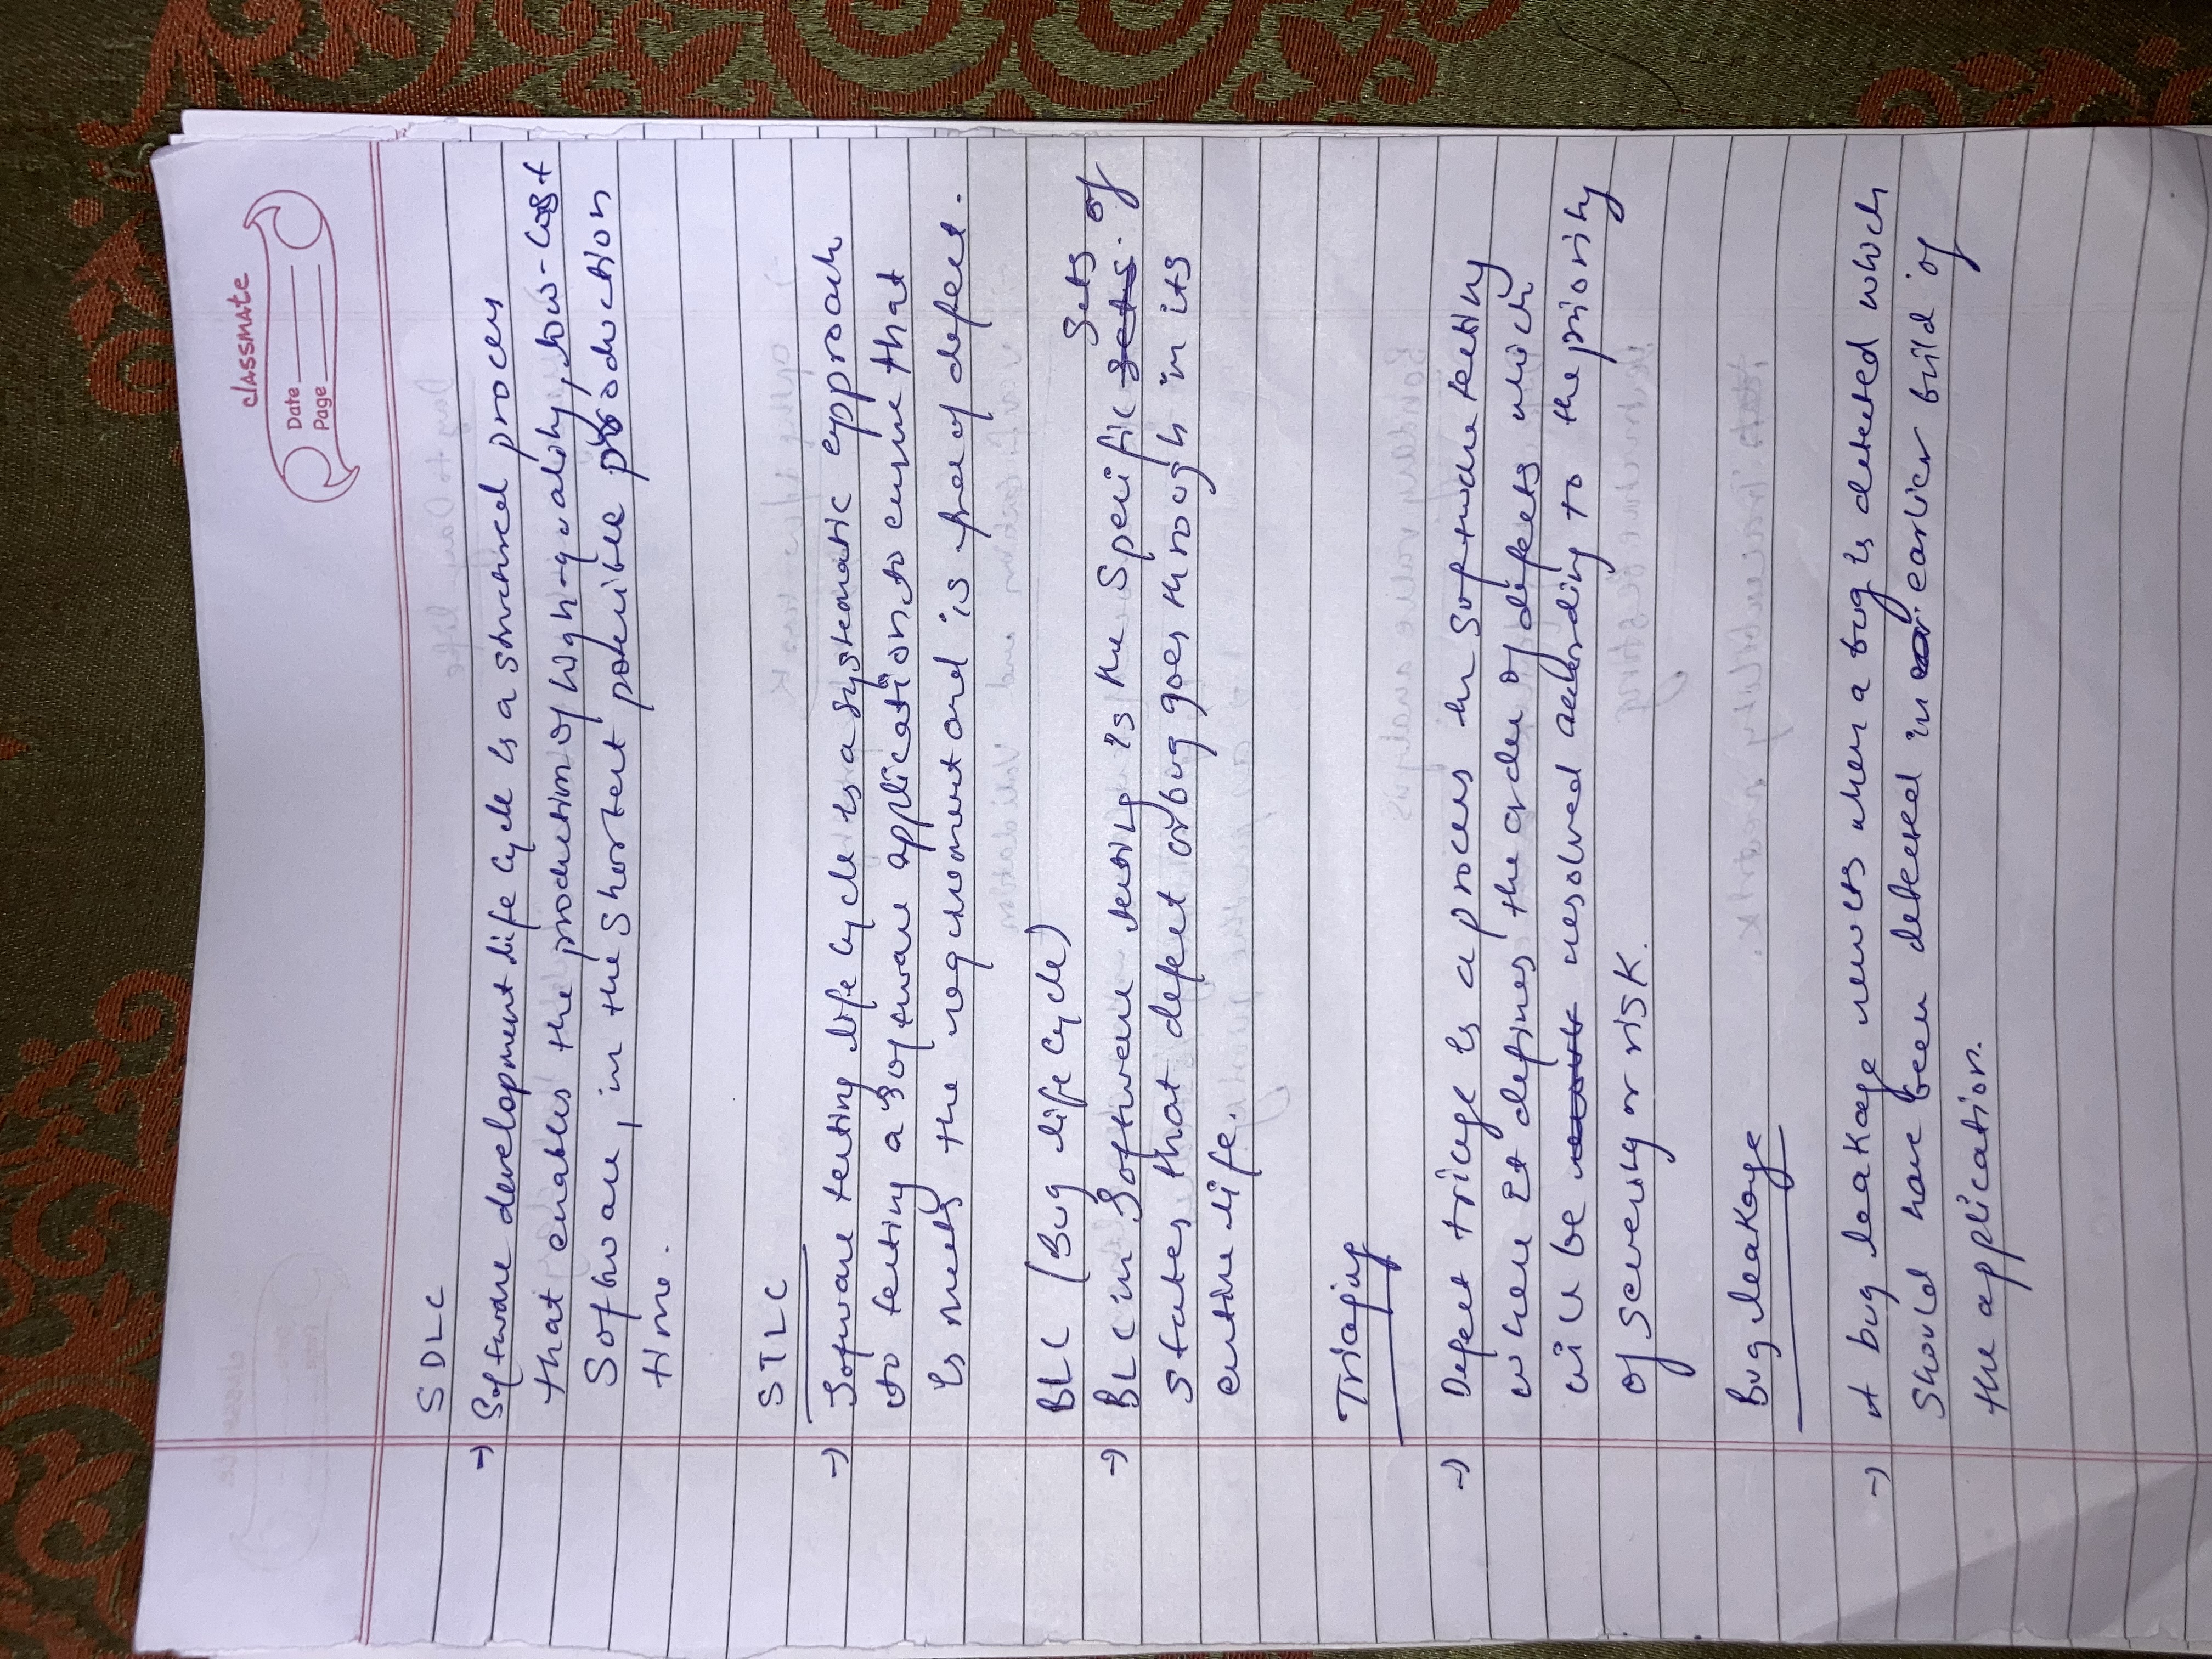 classmate
Date
Page
SDLC
→ Software development life cycle is a structured process
that enables the production of high-quality, low-cost
Software, in the shortest possible production
time.
STLC
→ Sofware testing life cycle is a systematic approach
to testing a software application to ensure that
is meets the requirement and is free of defect.
BLC (Bug life cycle)
→ BLC in Software testing is the Specific sets Sets of
states that defect or bug goes through in its
entire life.
Triaging
→ Defect triage is a process in software testing
where it defines the order of defects which
will be resolved according to the priority
of severity or risk.
Bug leakage
→ A bug leakage results when a bug is detected which
should have been detected in earlier build of
the application.